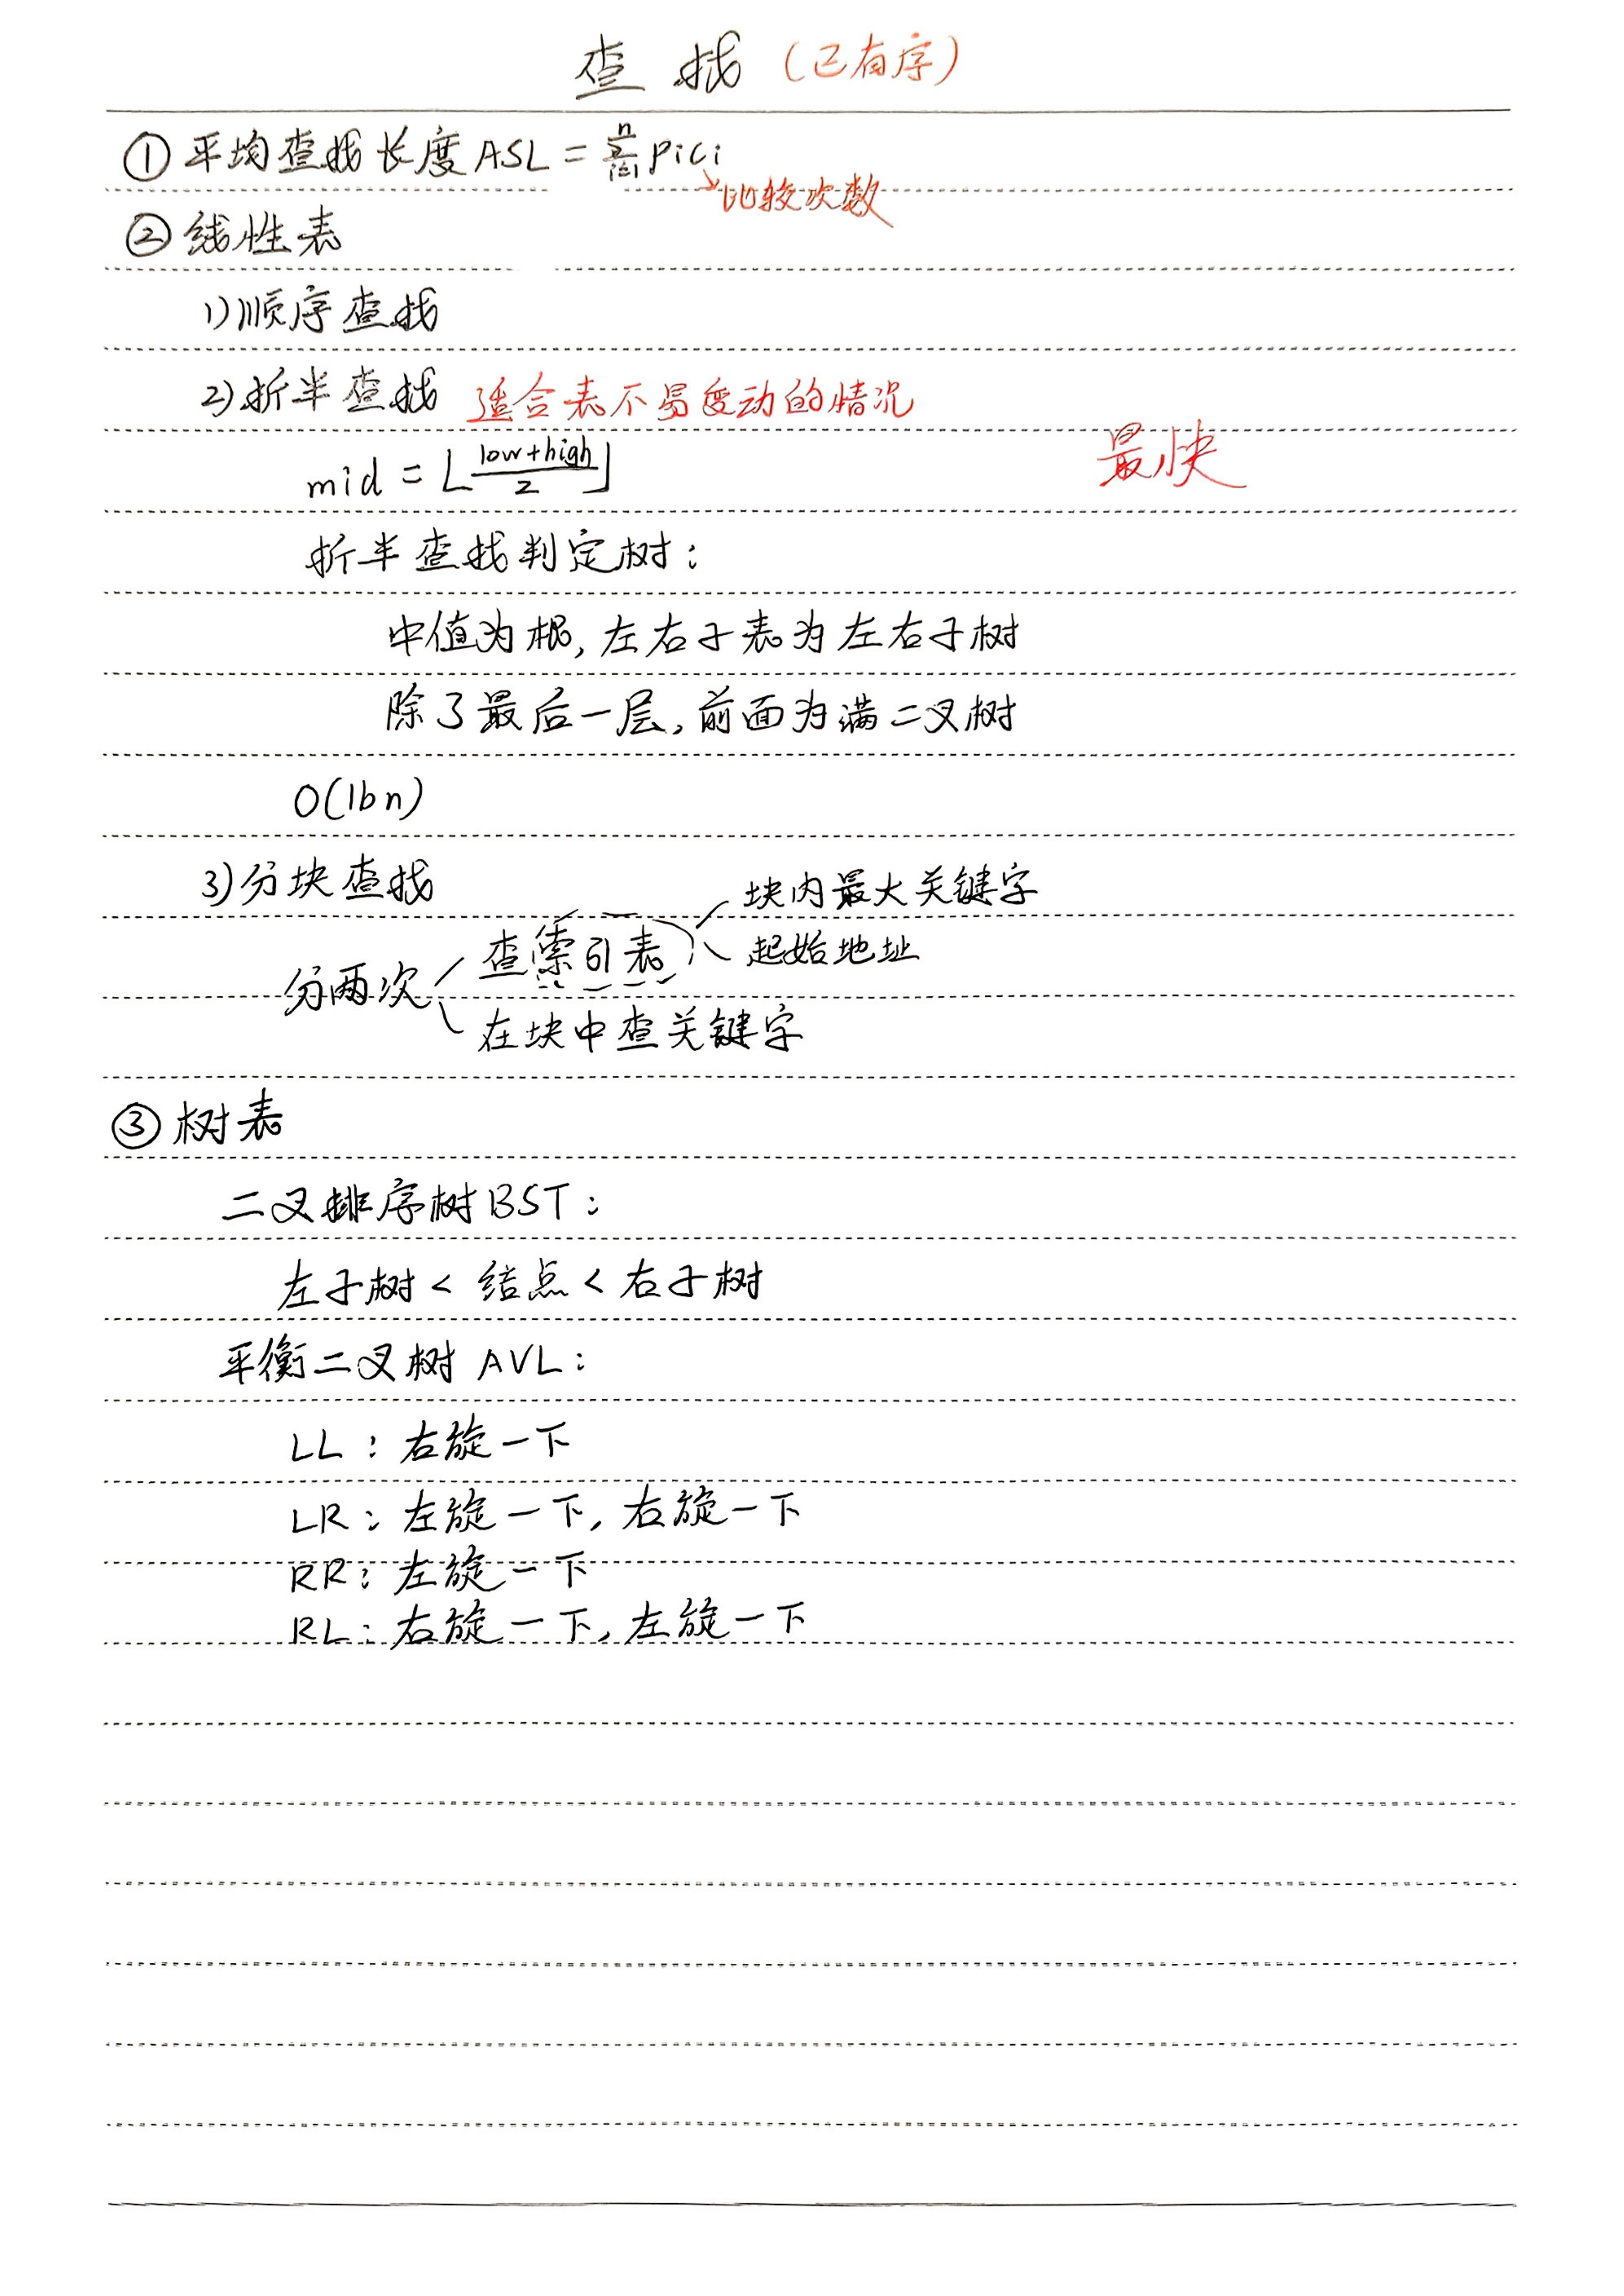 查找（已有序）
①平均查找长度ASL=∑ⁿᵢ₌₁ pici
比较次数
②线性表
1)顺序查找
2)折半查找 适合表不易变动的情况
mid=⌊(low+high)/2⌋ 最快
折半查找判定树：
中值为根，左右子表为左右子树
除了最后一层，前面为满二叉树
O(lbn)
3)分块查找
块内最大关键字
分两次 查索引表 起始地址
在块中查关键字
③树表
二叉排序树BST：
左子树<结点<右子树
平衡二叉树AVL：
LL：右旋一下
LR：左旋一下，右旋一下
RR：左旋一下
RL：右旋一下，左旋一下